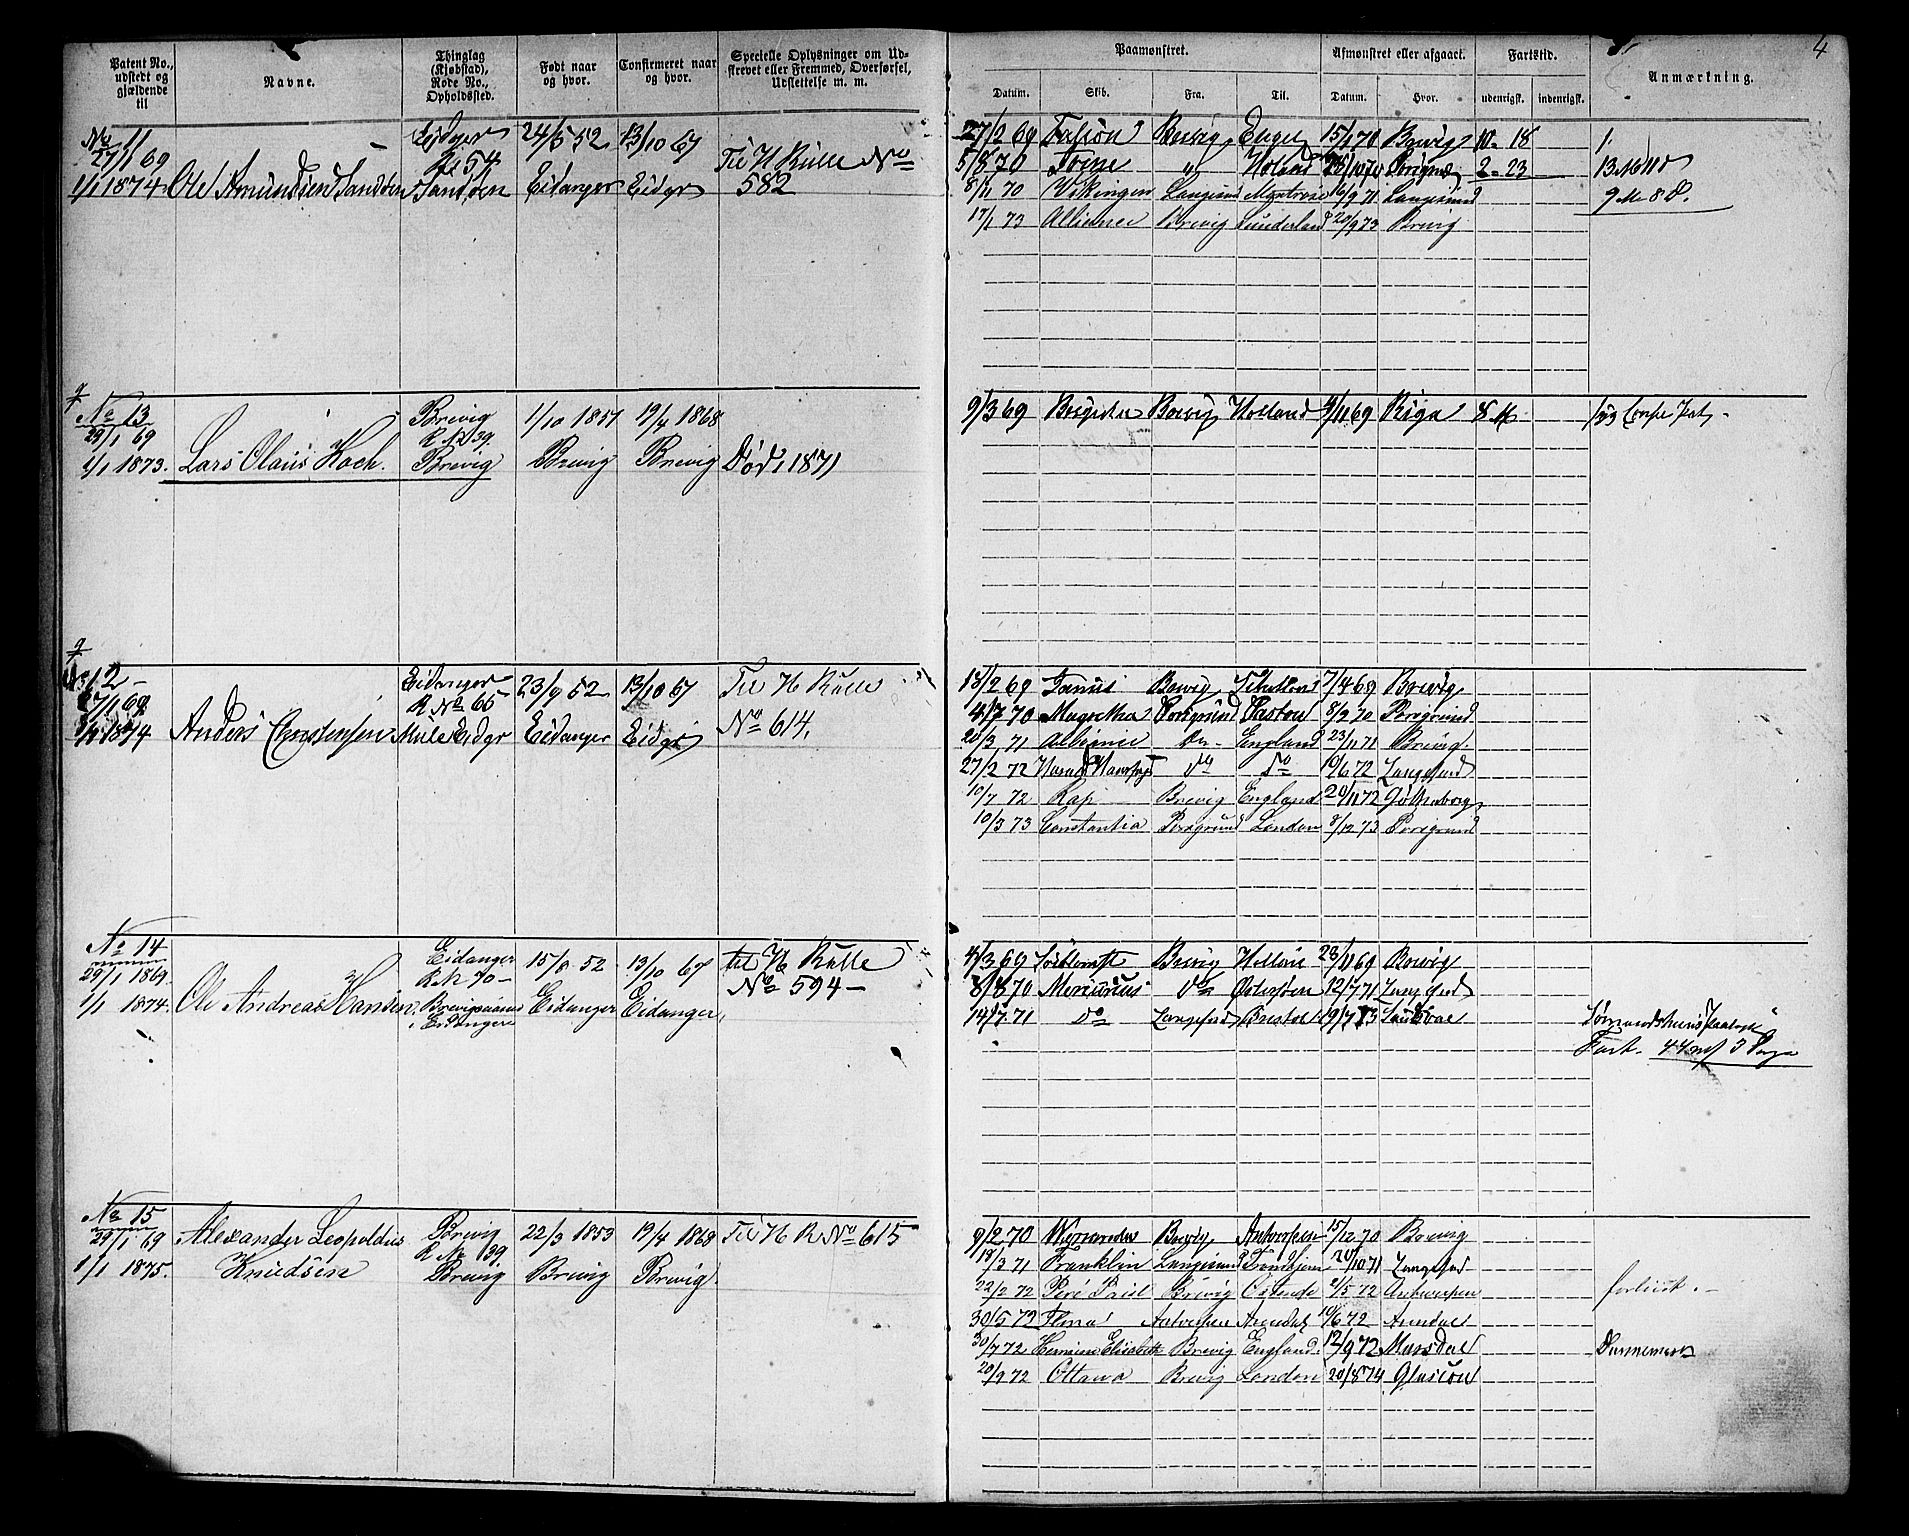 4
Patent No., udstedt og gjældende til
Navne.
Thinglag (Kjøbstad), Rode No., Opholdssted.
Født naar og hvor.
Confirmeret naar og hvor.
Specielle Oplysninger om Udskrevet eller Fremmed, Overførsel, Udslettelse m. m.
Paamønstret.
Afmønstret eller afgaaet.
Fartstid.
Anmærkning.
Datum. Skib. Fra. Til. Datum. Hvor. udenrigsk. indenrigsk.
No 11
27/1 69
1/1 1874
Ole Amundsen Sandøen
Eidger
No 54
Sandøen
24/5 52
Eidanger
13/10 67
Eidgr
Til H Rulle No
582
27/2 69 Brevig 15/1 70 Brevig 10 - 18
5/8 70 " Holand 28/10 70 2 - 23
8/11 70 Vikingen Langesund Montrose 16/9 71 Langesund
17/1 73 Alliance Brevig Sunderland 20/9 73 Brevig
1.
9 M 8 D.
No 13
29/1 69
1/1 1873.
Lars Olaus Koch.
Brevig
R No 39.
Brevig
1/10 1851
Brevig
19/4 1868
Brevig
Død, 1871
9/3 69 Brevig Holland 9/11 69 Riga 8 M
12 -
27/1 69
1/1 1874
Anders Christensen
Eidanger
R No 65
Mule Eidgr
23/9 52
Eidanger
13/10 67
Eidgr
Til H Rulle
No 614.
18/2 69 Brevig 7/4 69 Brevig
4/7 70 Magretha Porsgrund 8/2 70 Porsgrund
20/3 71 Alliance Do - England 23/11 71 Brevig.
27/2 72 Harald Haarfager do Do 10/6 72 Langesund
10/7 72 Brevig England 20/11 72 Gøthenborg
10/3 73 Constantia Porsgrund London 8/12 73 Porsgrund
No 14
29/1 1869.
1/1 1874.
Ole Andreas Hansen,
Eidanger
R N 70 -
Eidanger
15/8 52
Eidanger
13/10 67
Eidanger,
til H Rulle
No 594 -
4/3 69 Brevig 23/11 69 Brevig
8/8 70 Mercurius do 12/7 71 Langesund
14/7 71 do Langesund Bristol 19/7 73
Fart. 44 M 3 Dage
No 15
29/1 69
1/1 1875.
Alexander Leopoldus
Knudsen
Brevig
R No 39.
Brevig
22/3 1853
Brevig
19/4 1868
Brevig
Til H R No 615
9/2 70 Brevig Antwerpen 15/12 70 Brevig
18/3 71 Franklin Langesund Trondhjem 20/10 71 Langesund
22/2 72 Brevig Ostende 21/5 72 Antwerpen
forliist. -
30/5 72 Flora Antverpen Arendal 10/6 72 Arendal
30/7 72 Elisabeth Brevig England. 12/9 72 Marsdal
Dannemark
20/9 72 Ottawa Brevig London 20/8 74 Glascou